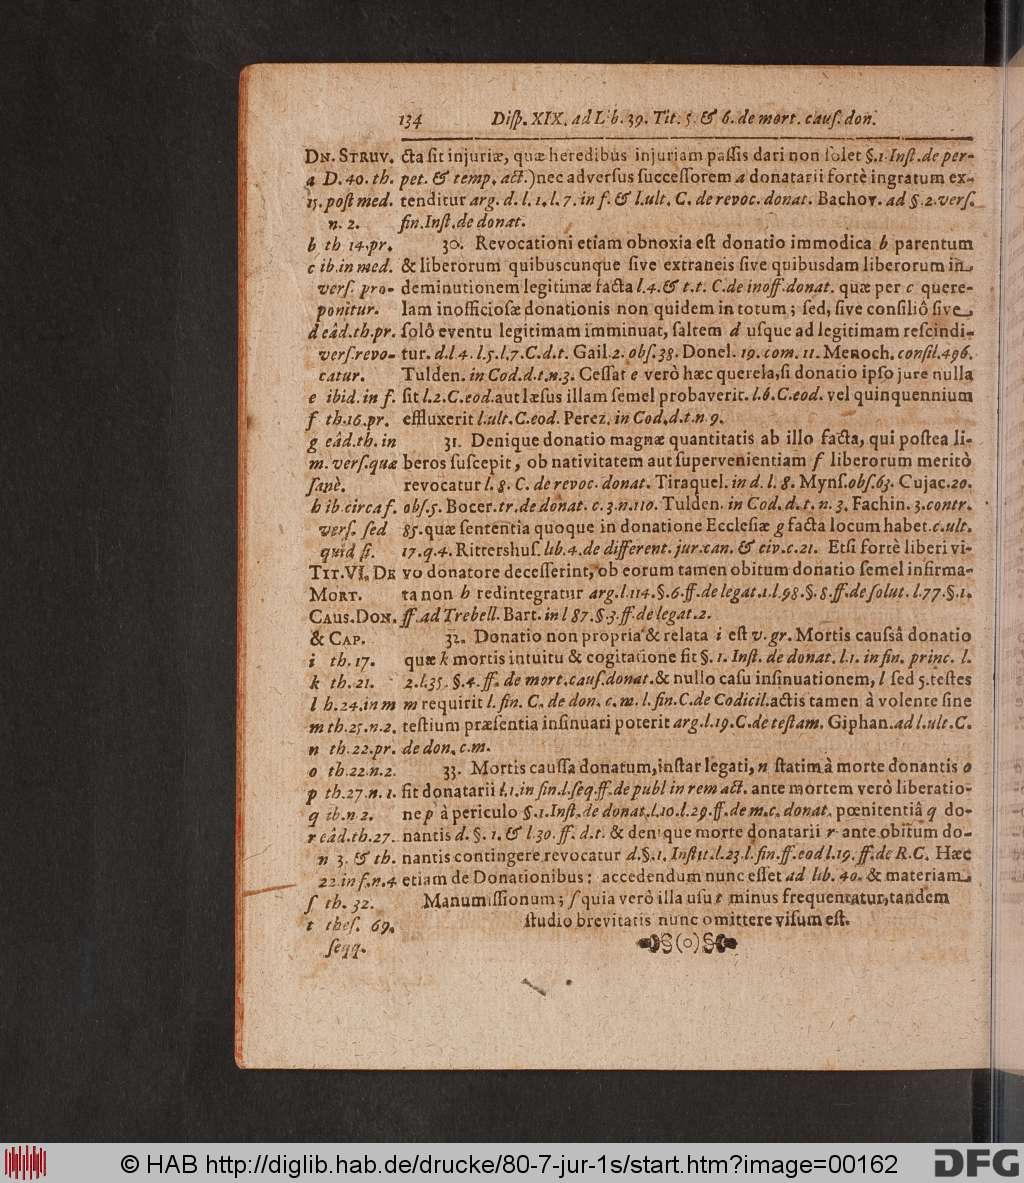 134 Disp. XIX. ad Lib. 39. Tit. 5. & 6. de mort. caus. don.
DN. STRUV.
a D. 40. th.
15. post med.
n. 2.
b th 14. pr.
c ib. in med.
vers. pro-
ponitur.
d eâd. th. pr.
vers. revo-
catur.
e ibid. in f.
f th. 16. pr.
g eâd. th. in
m. vers. quæ
sanè.
h ib. circa f.
vers. sed
quid si.
TIT. VI. DE
MORT.
CAUS. DON.
& CAP.
i th. 17.
k th. 21.
l h. 24. in m
m th. 25. n. 2.
n th. 22. pr.
o th. 22. n. 2.
p th. 27. n. 1.
q ib. n 2.
r eâd. th. 27.
n 3. & th.
22. in f. n. 4
ſ th. 32.
t theſ. 69.
ſeqq.
cta ſit injuriæ, quæ heredibus injuriam paſſis dari non ſolet §. 1. Inſt. de per-
pet. & temp. act.) nec adverſus ſucceſſorem a donatarii fortè ingratum ex-
tenditur arg. d. l. 1. l. 7. in f. & l. ult. C. de revoc. donat. Bachov. ad §. 2. verſ.
fin. Inſt. de donat.
30. Revocationi etiam obnoxia eſt donatio immodica b parentum
& liberorum quibuscunque ſive extraneis ſive quibusdam liberorum in
deminutionem legitimæ facta l. 4. & t. t. C. de inoff. donat. quæ per c quere-
lam inofficioſæ donationis non quidem in totum; ſed, ſive conſiliô ſive
ſolô eventu legitimam imminuat, ſaltem d uſque ad legitimam reſcindi-
tur. d. l 4. l. 5. l. 7. C. d. t. Gail. 2. obſ. 38. Donel. 19. com. 11. Menoch. conſil. 496.
Tulden. in Cod. d. t. n. 3. Ceſſat e verò hæc querela, ſi donatio ipſo jure nulla
ſit l. 2. C. eod. aut læſus illam ſemel probaverit. l. 6. C. eod. vel quinquennium
effluxerit l. ult. C. eod. Perez. in Cod. d. t. n 9.
31. Denique donatio magnæ quantitatis ab illo facta, qui poſtea li-
beros ſuſcepit, ob nativitatem aut ſupervenientiam f liberorum meritò
revocatur l. 8. C. de revoc. donat. Tiraquel. in d. l. 8. Mynſ. obſ. 63. Cujac. 20.
obſ. 5. Bocer. tr. de donat. c. 3. n. 110. Tulden. in Cod. d. t. n. 3. Fachin. 3. contr.
85. quæ ſententia quoque in donatione Eccleſiæ g facta locum habet. c. ult.
17. q. 4. Rittershuſ. lib. 4. de different. jur. can. & civ. c. 21. Etſi fortè liberi vi-
vo donatore deceſſerint, ob eorum tamen obitum donatio ſemel infirma-
ta non h redintegratur arg. l. 114. §. 6. ff. de legat. 1. l. 98. §. 8. ff. de ſolut. l. 77. §. 1.
ff. ad Trebell. Bart. in l 87. §. 3. ff. de legat. 2.
32. Donatio non propria & relata i eſt v. gr. Mortis cauſsâ donatio
quæ k mortis intuitu & cogitatione fit §. 1. Inſt. de donat. l. 1. in fin. princ. l.
2. l. 35. §. 4. ff. de mort. cauſ. donat. & nullo caſu inſinuationem, l ſed 5. teſtes
m requirit l. fin. C. de don. c. m. l. fin. C. de Codicil. actis tamen à volente ſine
teſtium præſentia inſinuari poterit arg. l. 19. C. de teſtam. Giphan. ad l. ult. C.
de don. c. m.
33. Mortis cauſſa donatum, inſtar legati, n ſtatim à morte donantis o
fit donatarii l. 1. in fin. l. ſeq. ff. de publ in rem act. ante mortem verò liberatio-
ne p à periculo §. 1. Inſt. de donat. l. 10. l. 29. ff. de m. c. donat. pœnitentiâ q do-
nantis d. §. 1. & l 30. ff. d. t. & denique morte donatarii r ante obitum do-
nantis contingere revocatur d. §. 1. Inſtit. l. 23. l. fin. ff. eod l. 19. ff. de R. C. Hæc
etiam de Donationibus: accedendum nunc eſſet ad lib. 40. & materiam
Manumiſſionum; ſ quia verò illa uſu t minus frequentatur, tandem
ſtudio brevitatis nunc omittere viſum eſt.
§(o)§
© HAB http://diglib.hab.de/drucke/80-7-jur-1s/start.htm?image=00162
DFG